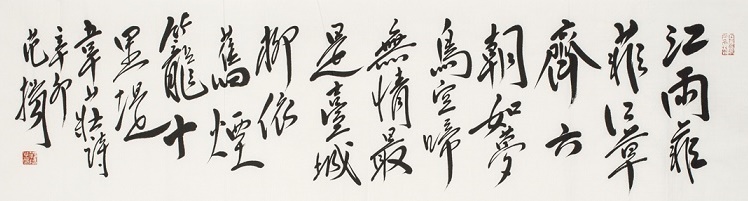 江雨菲
菲江草
齊六
朝如夢
鳥空啼
無情最
是臺城
柳依
舊煙
籠十
里堤
韋莊詩
辛卯
范